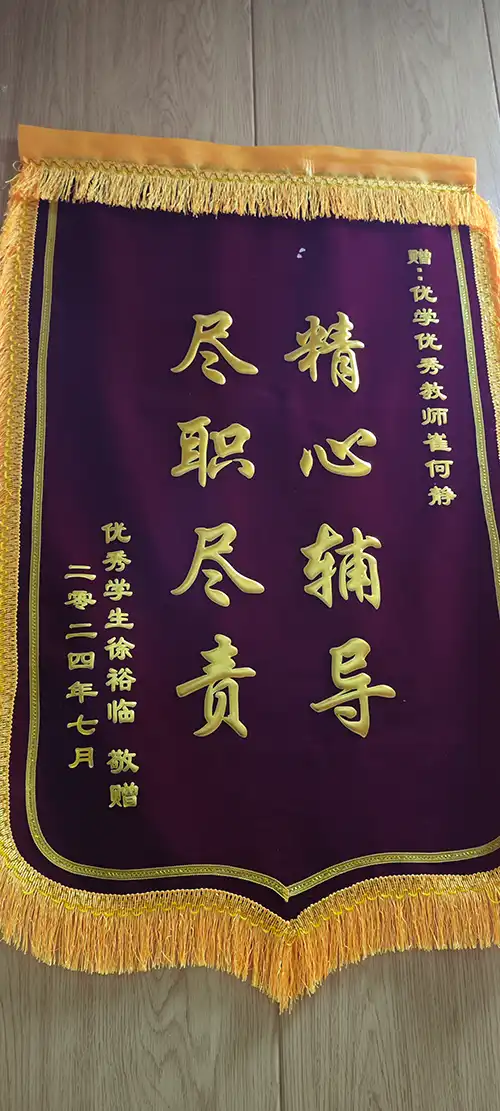 赠：优学优秀教师崔何静
精心辅导
尽职尽责
优秀学生徐裕临 敬赠
二零二四年七月